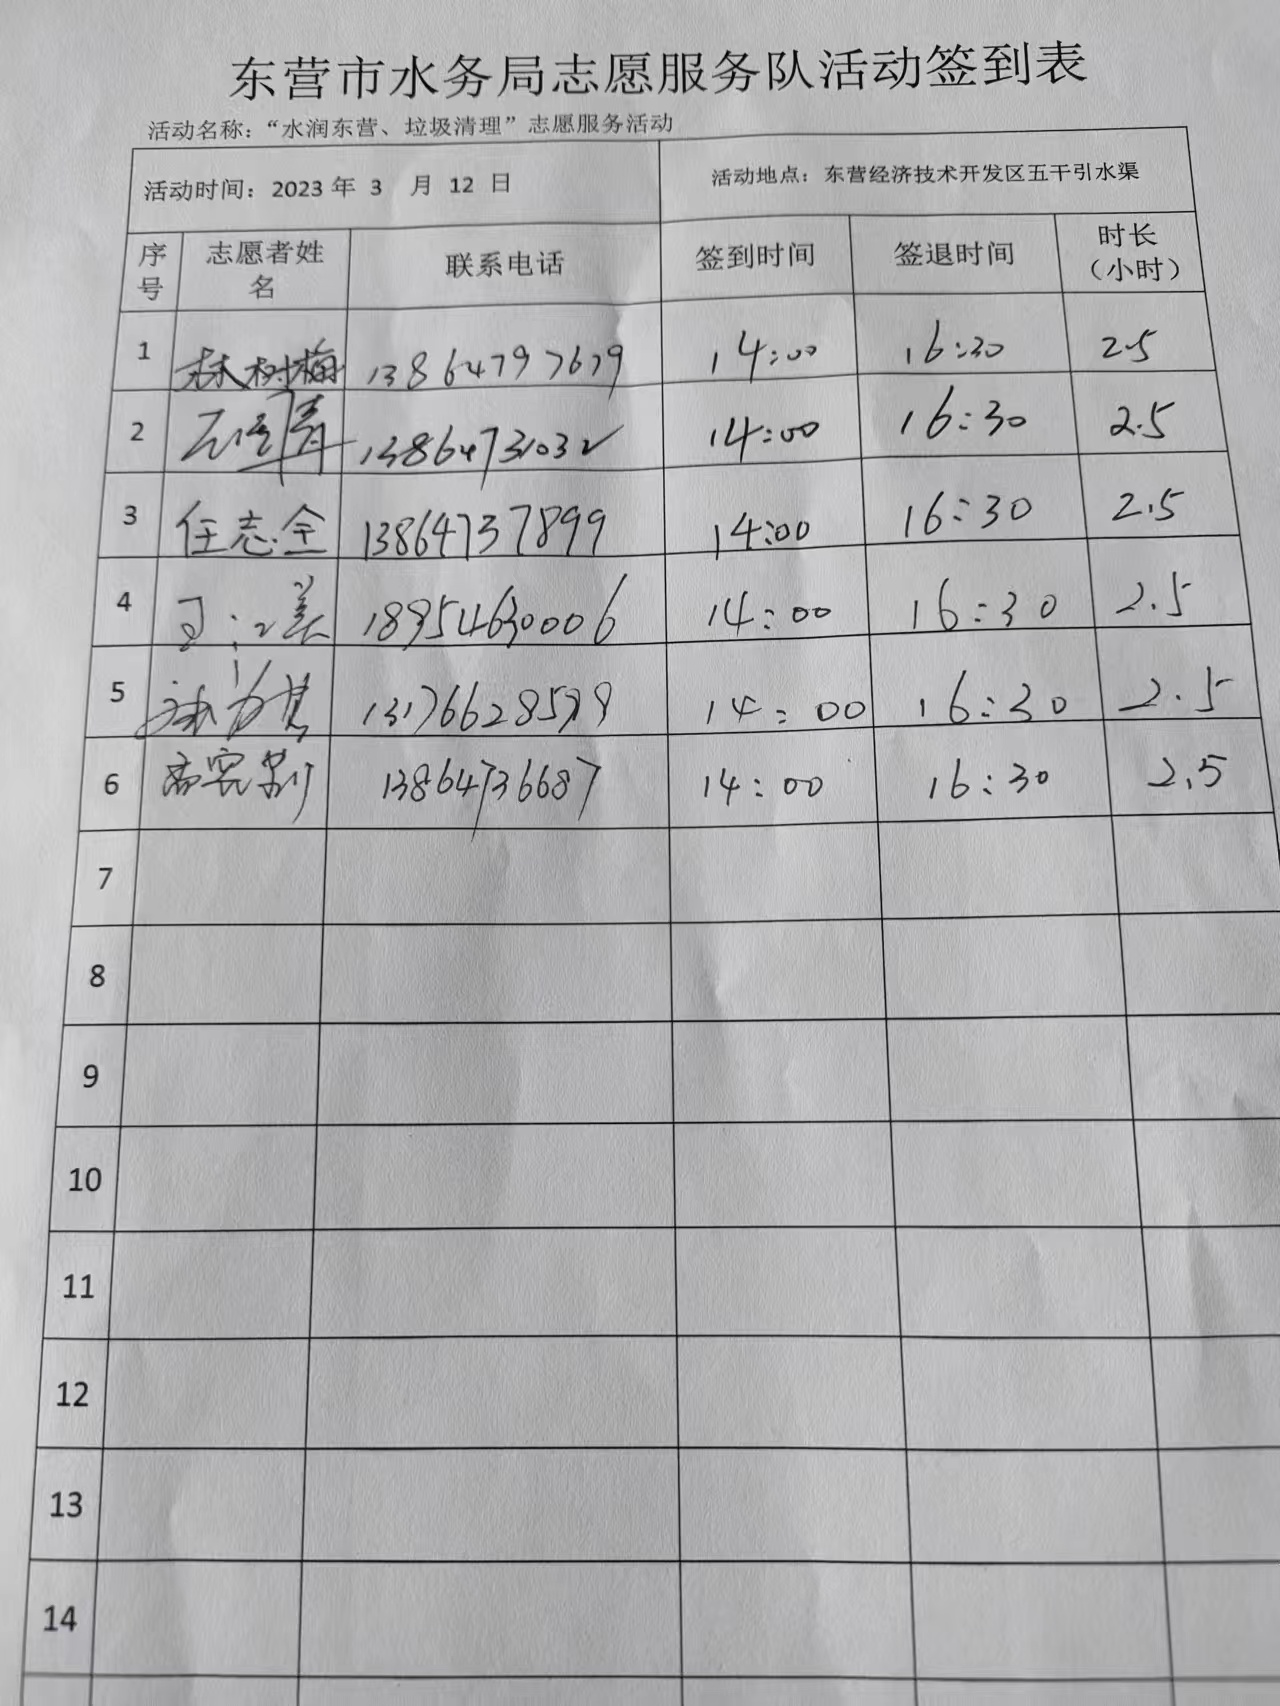 东营市水务局志愿服务队活动签到表
活动名称：“水润东营、垃圾清理”志愿服务活动
活动时间：2023 年 3 月 12 日 活动地点：东营经济技术开发区五干引水渠
序号 志愿者姓名 联系电话 签到时间 签退时间 时长（小时）
1 林树梅 13864797679 14:00 16:30 2.5
2 13864731032 14:00 16:30 2.5
3 任志全 13864737899 14:00 16:30 2.5
4 18954630006 14:00 16:30 2.5
5 14:00 16:30 2.5
6 13864736687 14:00 16:30 2.5
7
8
9
10
11
12
13
14